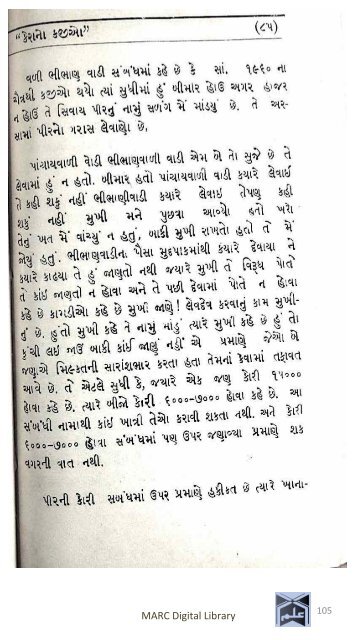 "કેરાનો કજીઓ" (૮૫)
વળી ભીભાણ વાડી સંબંધમાં કહે છે કે સાં. ૧૯૬૦ ના
ચૈત્રથી કજીઓ થયો ત્યાં સુધીમાં હું બીમાર હોઉં અગર હાજર
ન હોઉં તે સિવાય પીરનું નામું સળંગ મેં માંડયું છે. તે અર-
સામાં પીરનો ગરાસ લેવાણો છે,
પાંચાયવાળી વાડી ભીભાણુવાળી વાડી એમ બે તો સુજે છે તે
લેવામાં હું ન હતો. બીમાર હતો પાંચાયવાળી વાડી કયારે લેવાઈ
તે કહી શકું નહીં ભીભાણીવાડી કયારે લેવાઈ તેપણ કહી
શકું નહીં મુખી મને પુછવા આવ્યો હતો ખરો
તેનું ખત મેં વાંચ્યું ન હતું, બાકી મુખી રાખતો હતો તે મેં
જોયું હતું. ભીભાણુવાડીના પૈસા મુદ્દપાકમાંથી કયારે દેવાયા ને
કયારે કાઢયા તે હું જાણતો નથી જયારે મુખી તે વિરૂધ પોતે
તે કાંઈ જાણતો ન હોવા અને તે પછી દેવામાં પોતે ન હોવા
કહે છે કામડીઓ કહે છે મુખી જાણે! લેવદેવ કરવાનું કામ મુખી-
નું છે. હુંતો મુખી કહે ને નામું માંડું ત્યારે મુખી કહે છે હું તો
કુંચી લઈ જાઉં બાકી કાંઈ જાણું નહીં એ પ્રમાણે જેઓ બે
જણુએ મિલ્કતની સારાંશભાર કરતા હતા તેમનાં કેવામાં તફાવત
આવે છે. તે એટલે સુધી કે, જયારે એક જણ કોરી ૧૫૦૦૦
હોવા કહે છે. ત્યારે બીજો કોરી ૬૦૦૦-૭૦૦૦ હોવા કહે છે. આ
સંબંધી નામાથી કાંઈ ખાત્રી તેઓ કરાવી શકતા નથી. અને કોરી
૬૦૦૦-૭૦૦૦ હોવા સંબંધમાં પણ ઉપર જણાવ્યા પ્રમાણે શક
વગરની વાત નથી.
પીરની કોરી સબંધમાં ઉપર પ્રમાણે હકીકત છે ત્યારે ખાના-
MARC Digital Library 105